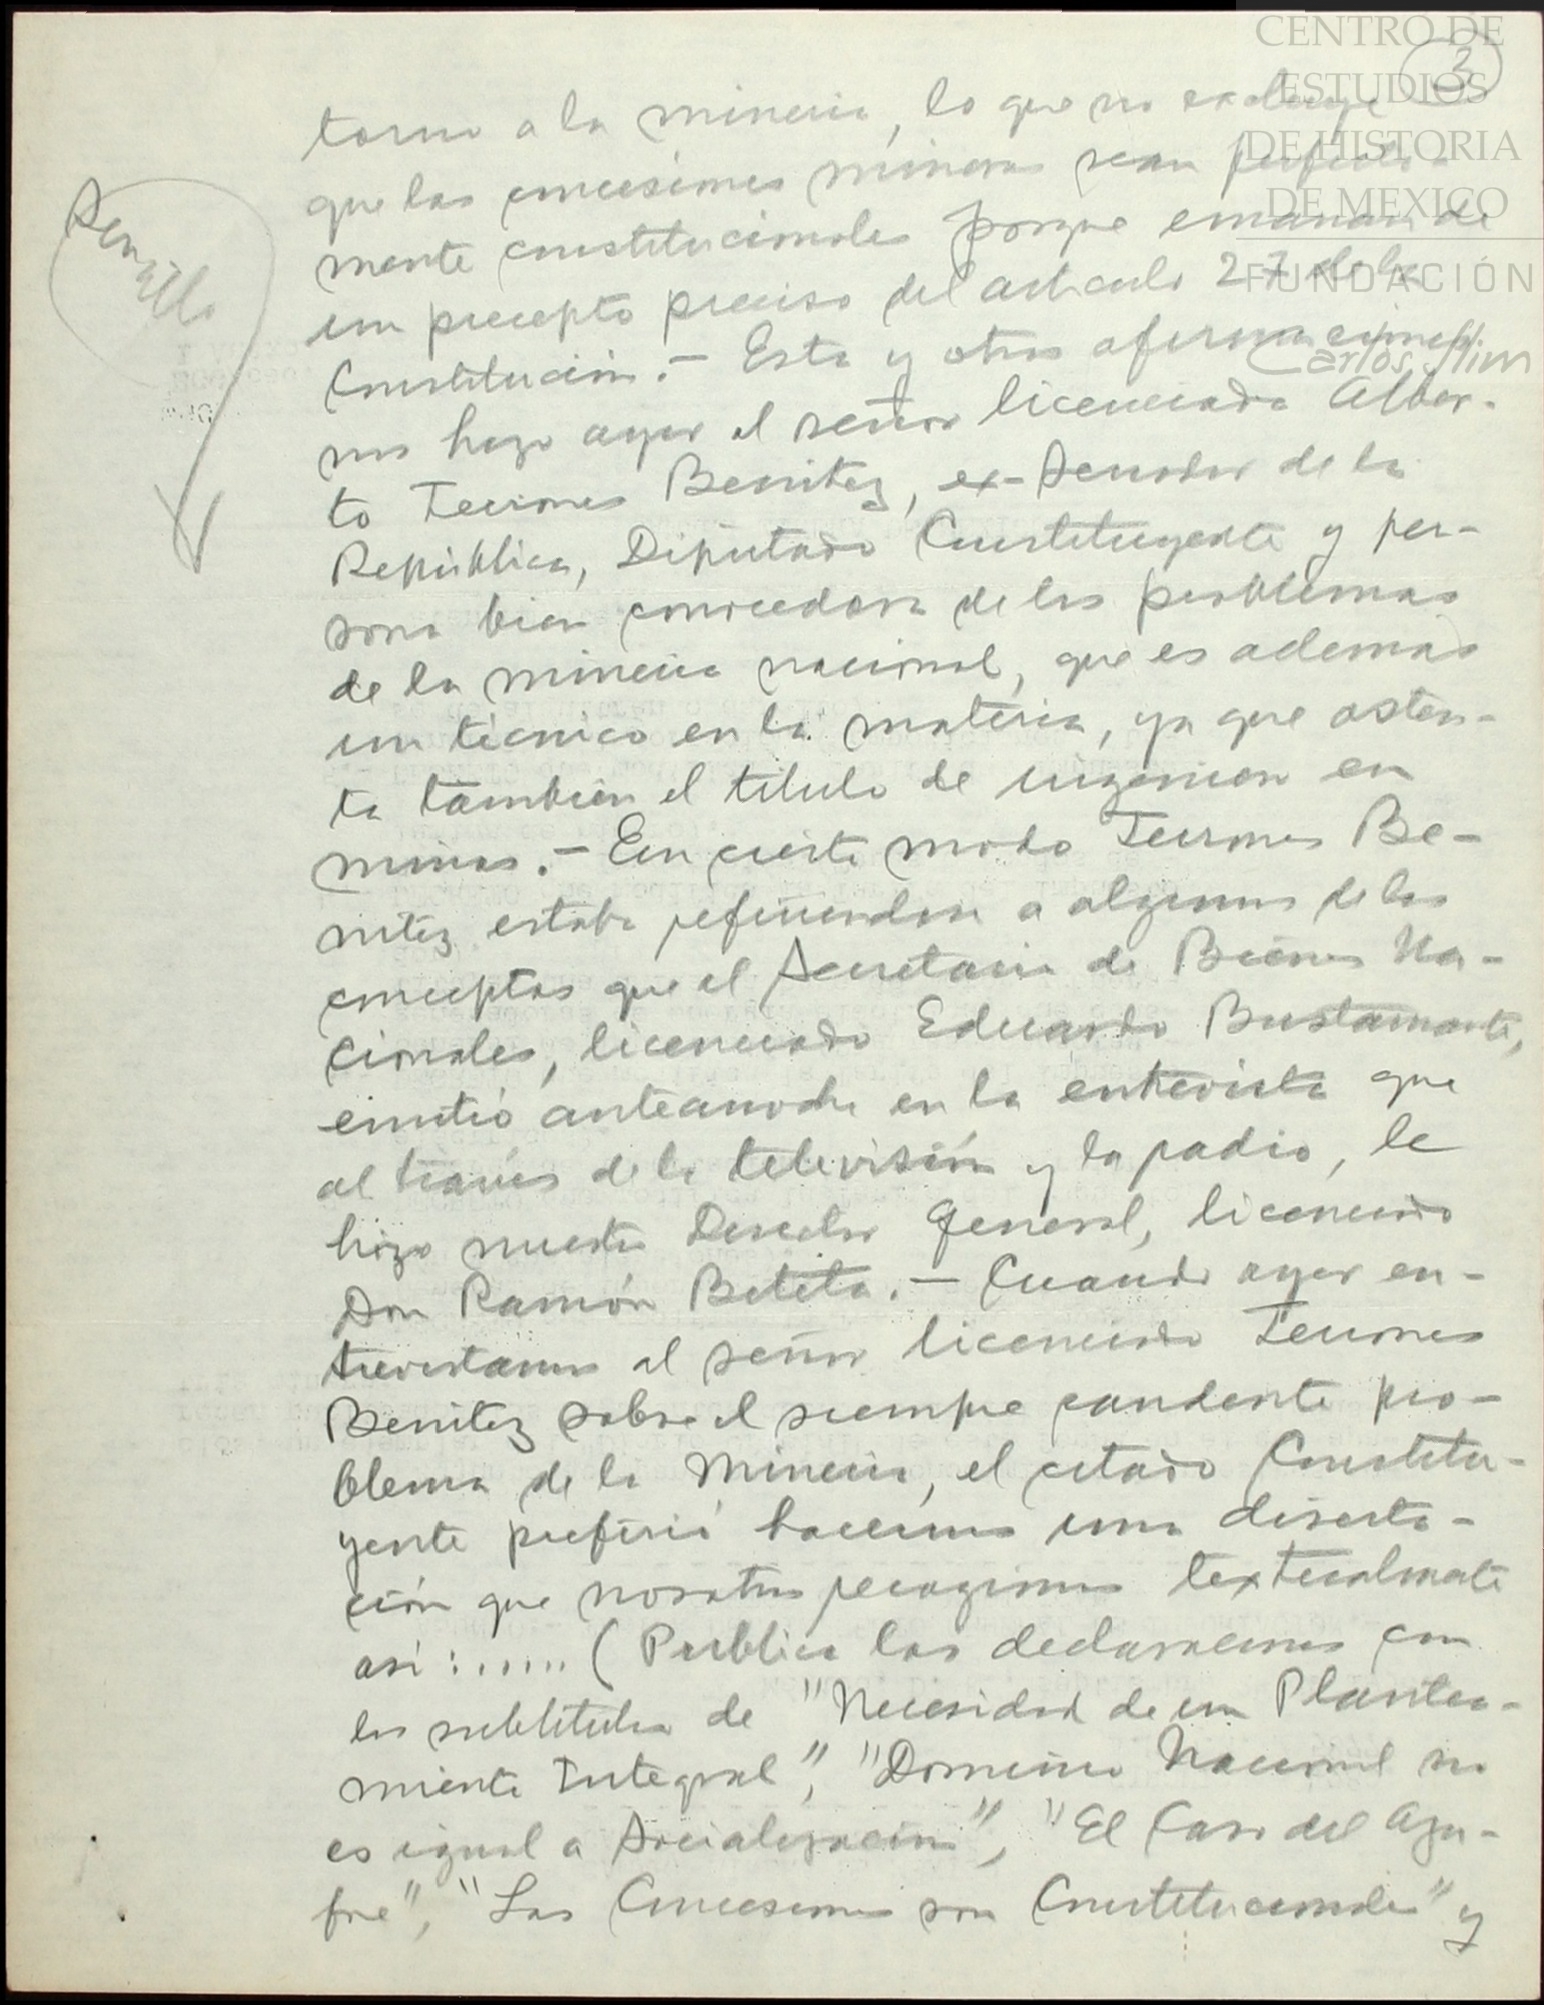 CENTRO DE
ESTUDIOS
DE HISTORIA
DE MEXICO
FUNDACIÓN
Carlos Slim
3
Sencillo
torno a la mineria, lo que no excluye
que las concesiones mineras sean perfecta-
mente constitucionales porque emanan de
un precepto preciso del articulo 27 de la
Constitución.- Esta y otras afirmaciones
nos hizo ayer el señor licenciado Alber-
to Terrones Benitez, ex-Senador de la
República, Diputado Constituyente y per-
sona bien conocedora de los problemas
de la mineria nacional, que es además
un técnico en la materia, ya que osten-
ta también el titulo de ingeniero en
minas.- En cierto modo Terrones Be-
nitez estaba refiriendose a algunos de los
conceptos que el Secretario de Bienes Na-
cionales, licenciado Eduardo Bustamante,
emitió anteanoche en la entrevista que
al través de la televisión y la radio, le
hizo nuestro Director General, licenciado
Don Ramón Beteta.- Cuando ayer en-
trevistamos al señor licenciado Terrones
Benitez sobre el siempre candente pro-
blema de la Mineria, el citado Constitu-
yente prefirió hacernos una diserta-
ción que nosotros recogimos textualmente
asi:...... (Publica las declaraciones con
los subtitulos de "Necesidad de un Plantea-
miento Integral", "Dominio Nacional no
es igual a Socialización", "El Caso del Azu-
fre", "Las Concesiones son Constitucionales" y